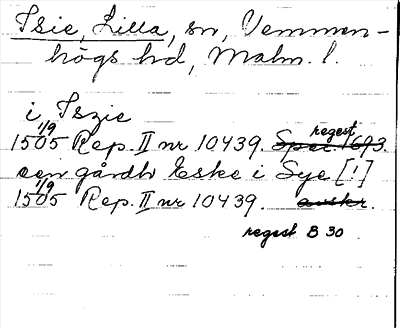 Isie, Lilla, sn, Vemmen-
högs hd, Malm. l.
i Iszie
1/9 regest
1505 Rep. II nr 10439. Spec. 1693.
een gårdh Eske i Sye [!]
1/9
1505 Rep. II nr 10439. avskr.
regest B 30.